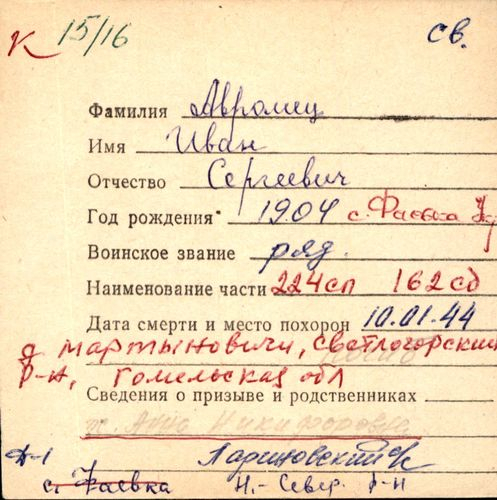 К 15/16 св.
Фамилия Авромец
Имя Иван
Отчество Сергеевич
Год рождения 1904 с. Фаевка
Воинское звание ряд.
Наименование части 224 сп 162 сд
Дата смерти и место похорон 10.01.44
д Мартыновичи, Светлогорский
р-н, Гомельская обл
Сведения о призыве и родственниках
Никифоровна
Д-1
с. Фаевка Н.-Север. р-н